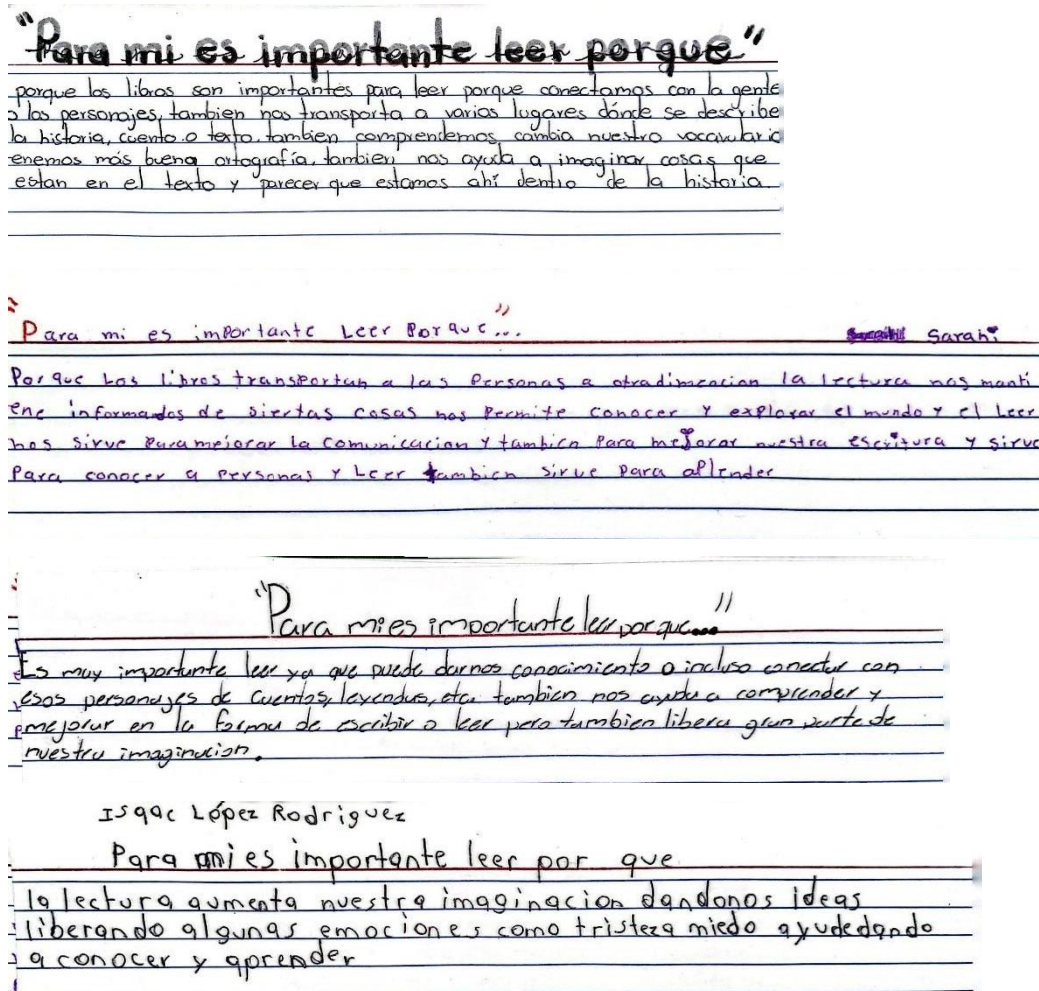 "Para mi es importante leer porque"
porque los libros son importantes para leer porque conectamos con la gente
o los personajes, tambien nos transporta a varios lugares dónde se describe
la historia, cuento o texto. tambien comprendemos, cambia nuestro vocavulario
enemos más buena ortografía, tambien nos ayuda a imaginar cosas que
estan en el texto y parecer que estamos ahí dentro de la historia.
"Para mi es importante Leer Porque..." Sarahi
Porque Los libros transportan a las Personas a otradimencion la lectura nos manti
ene informandos de siertas cosas nos Permite conocer y explorar el mundo y el Leer
nos sirve Paramejorar la comunicacion y tambien Para mejorar nuestra escritura y sirve
Para conocer a Personas y Leer tambien sirve Para aplender
"Para mies importante leer por que..."
Es muy importante leer ya que puede darnos conocimiento o incluso conectar con
esos personajes de cuentos, leyendas, etc. tambien nos ayuda a comprender y
mejorar en la forma de escribir o leer pero tambien libera gran parte de
nuestra imaginacion.
Isaac López Rodriguez
Para mi es importante leer por que
la lectura aumenta nuestra imaginacion dandonos ideas
liberando algunas emociones como tristeza miedo ayudedando
a conocer y aprender